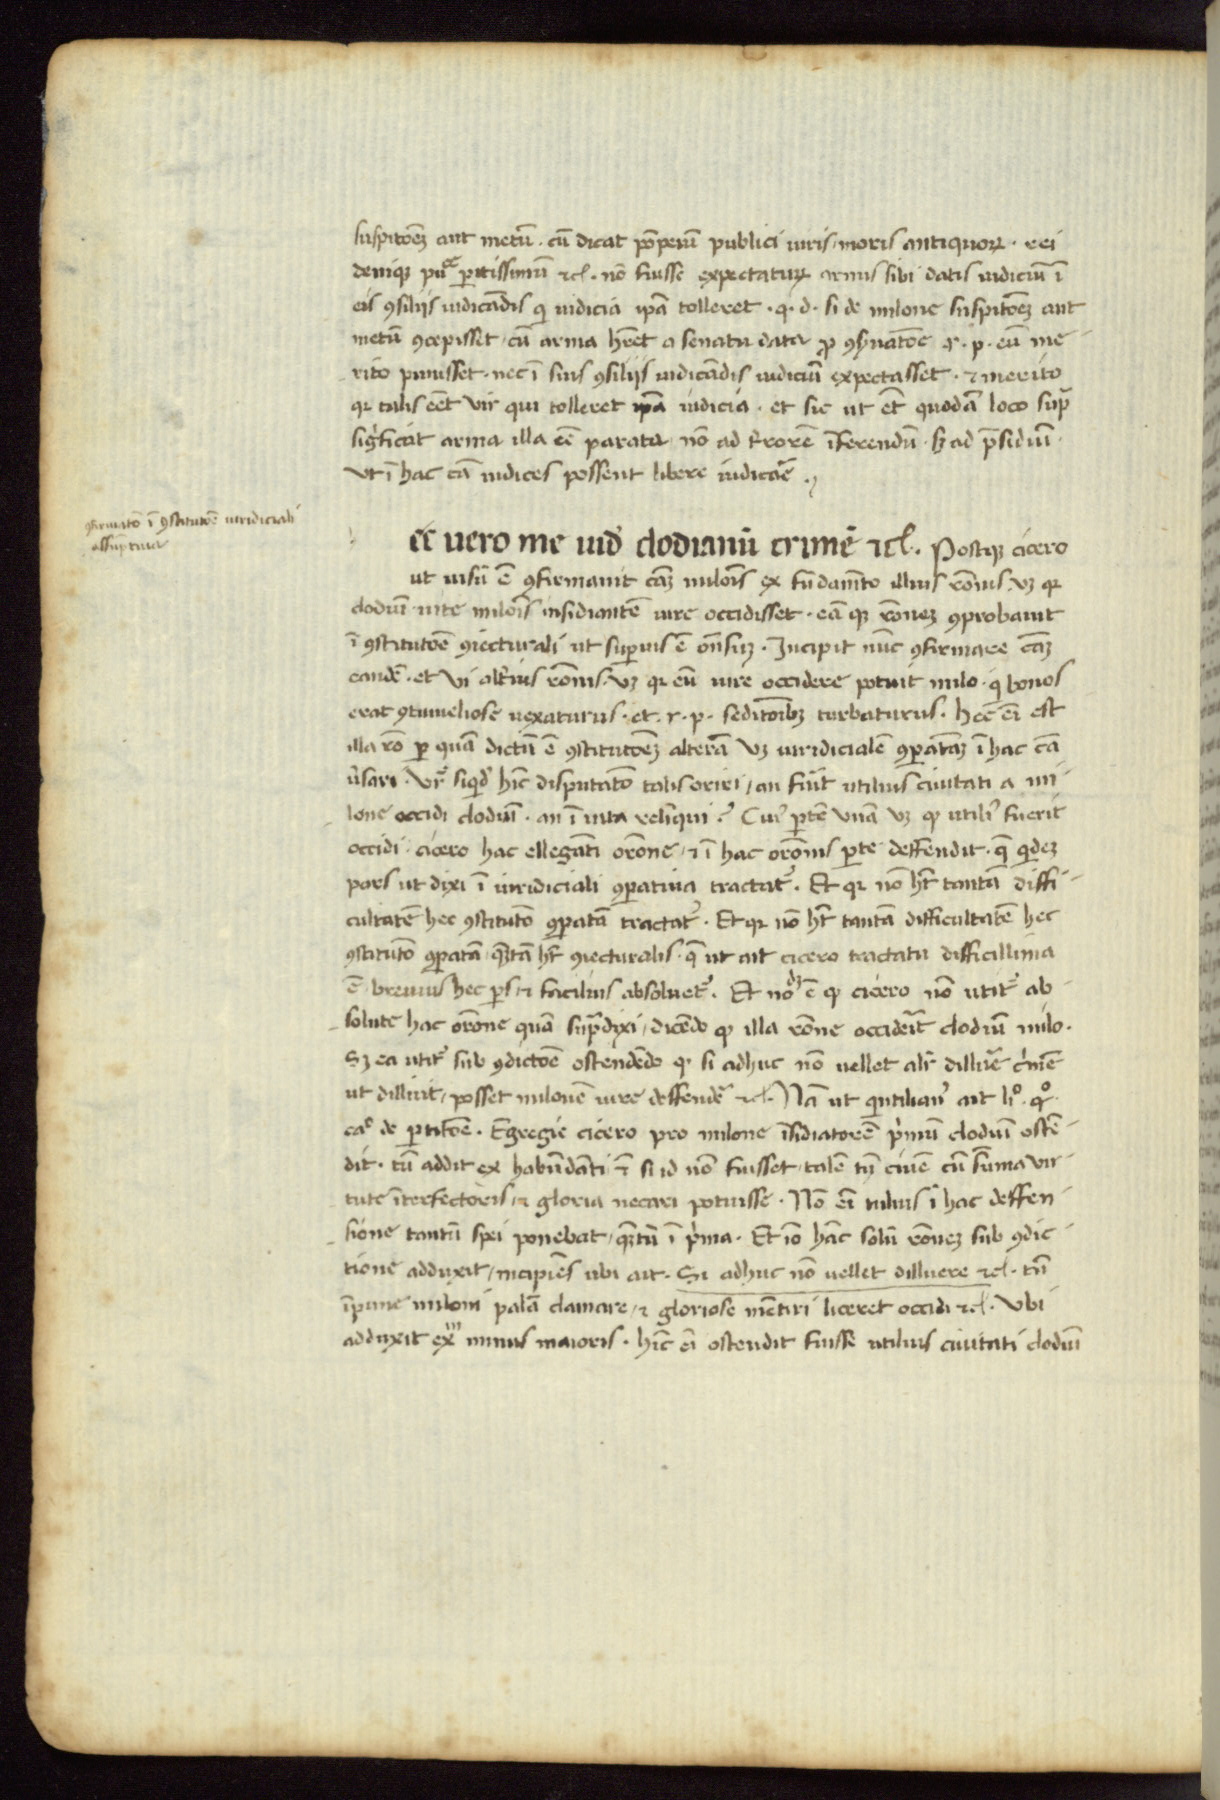 suspitōeꝫ aut metū · cū dicat pōpeiū publici iuris, moris antiquoꝝ · rei
deniqꝫ pu.ce peritissimū ⁊cl̃ · nō fuisse expectaturꝝ armis sibi datis iudiciū ī
eis ꝯsiliis iudicādis q̇ iudicia ip̄a tolleret · q · d · si de milone suspitōeꝫ aut
metū ꝯcepisset, cū arma hr̄et a senatu data ꝓ ꝯs̄uatōe r · p · eū me
rito punisset · nec ī suis ꝯsiliis iudicādis iudiciū expectasset · ⁊ merito
qꝛ talis eēt vir qui tolleret ip̄a iudicia · et sic ut et̄ quodā loco supͣ
sigͥficat arma illa eē parata nō ad t̄rorē īferendū · sꝫ ad p̄sidiuꝫ ·
vt ī hac cā iudices possent libere iudicaͬe ·
ꝯfirmatō ī ꝯstitutōe iuridiciali
assūptiua
ec̄ vero me uid̄ clodianū crimē ⁊cl̃ · Postqꝫ cicero
ut uisū ē ꝯfirmauit cāꝫ milōis ex fūdamēto illius rōnis, vꝫ qꝛ
clodiū uite milōis insidiantē iure occidisset · eā qꝫ rōneꝫ ꝯprobauit
ī ꝯstitutōe ꝯiecturali ut suꝑius ē on̄sūꝫ · Incipit nūc ꝯfirmare cāꝫ
eandē · et vi alt̄ius rōnis, vꝫ qꝛ eū iure occidere potuit milo · q̇ bonos
erat ꝯtumeliose uexaturus · et · r · p · seditōibꝫ turbaturus · hec ēī est
illa rō ꝑ quā dictū ē ꝯstitutōeꝫ alterā vꝫ iuridicialē ꝯꝑatāꝫ ī hac cā
ūsari vr̄ siqͥd̄ hīc disputatō talis oriri, an fuīt utilius ciuitati a mi
lone occidi clodiū · an ī uita relīqui? Cuiꝰ ꝑtē vnā vꝫ ꝙ utiliꝰ fuerit
occidi · cicero hac ellegāti orōne, ⁊ ī hac orōnis ꝑte deffendit · q̄ qͥdeꝫ
pars ut dixi ī iuridiciali ꝯꝑatiua tractat᷑ · Et qꝛ nō hꝫ tantā diffi
cultatē hec ꝯstitutō ꝯꝑatā tractat᷑ · Et qꝛ nō hꝫ tantā difficultatē hec
ꝯstitutō ꝯꝑatā, quātā hꝫ ꝯiecturalis · q̄ ut ait cicero tractatu difficillima
ē, breuius hec ꝑs, ⁊ facilius absoluet᷑ · Et nōdꝫ ē ꝙ cicero nō utit᷑ ab
solute hac orōne quā supͣ dixi, dicēdo ꝙ illa rōne occideīt clodiū milo ·
Sꝫ ea utit᷑ sub ꝯdictōe ostendēdo ꝙ si adhuc nō uellet alr̄ diluͬe cͥmē
ut diluit, posset milonē iure deffendͬe ⁊cl̃ · Nā ut qͥntilianꝰ ait liº · qº ·
caº de ꝑtitōe · Egregie cicero pro milone īsidiatorē pͥmū clodiū ostē
dit · tū addit ex habūdāti ⁊ si id nō fuisset, talē tn̄ ciuē cū sūma vir
tute īterfectoris, ⁊ gloria necari potuisse · Nō ēī tulius ī hac deffen
sione tantū spei ponebat, quātū ī pͥma · Et iō hāc solū rōneꝫ sub ꝯdic
tione adduxit, incipiēs ubi ait · Si adhuc nō uellet diluere ⁊cl̃ · tū
īpune miloni palā clamare, ⁊ gloriose mētiri liceret occidi ⁊cl̃ · Vbi
adduxit exᵐ minus maioris · hīc ēī ostendit fuisse utilius ciuitati clodiū